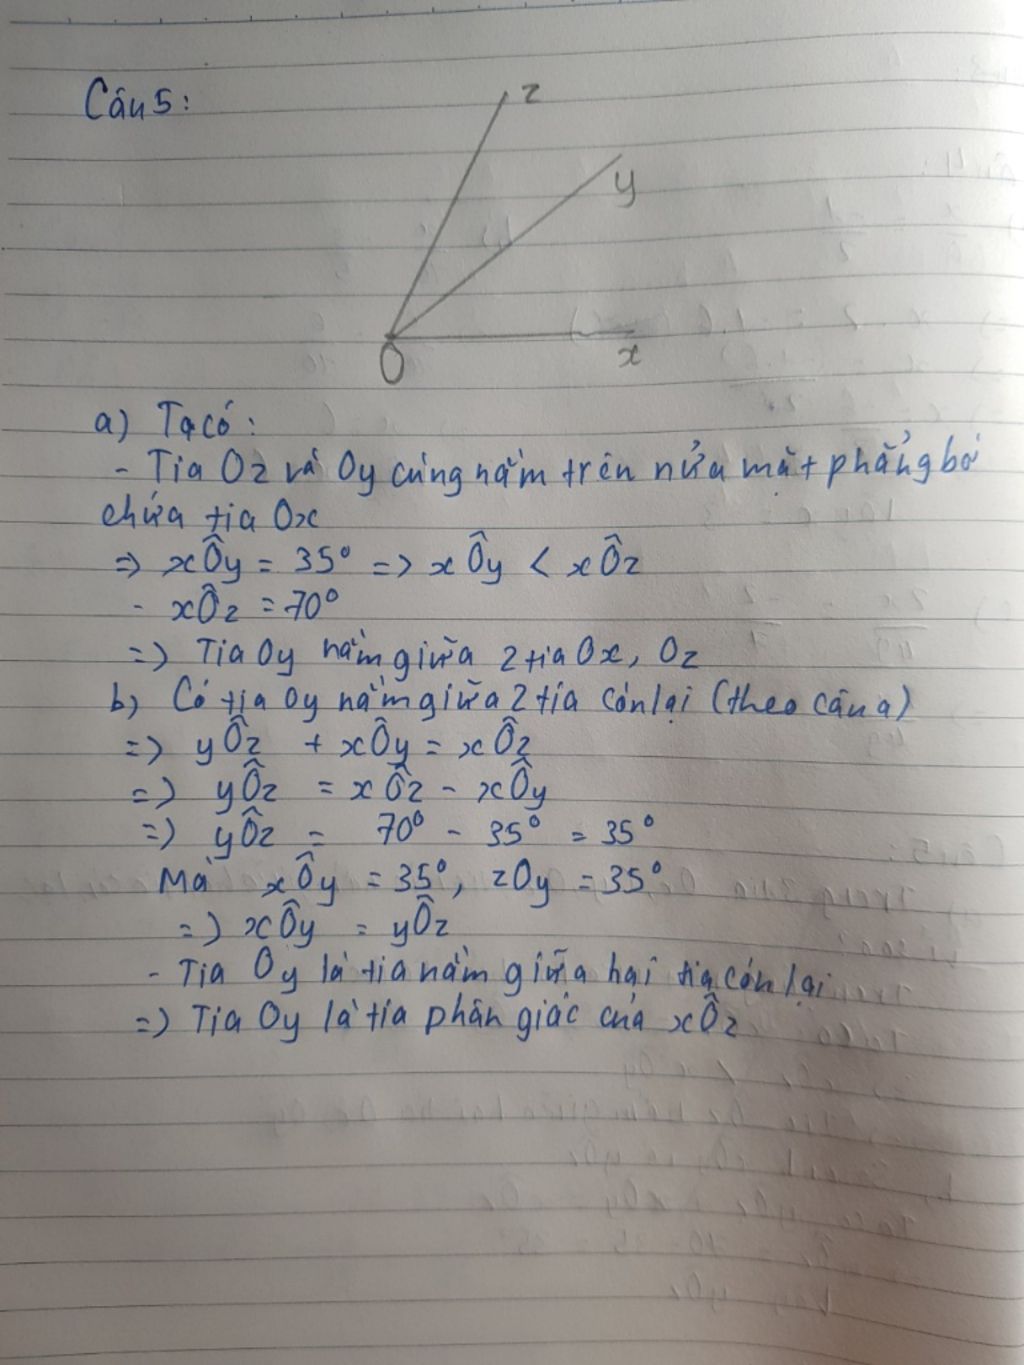 Câu 5:
z
y
O
x
a) Ta có:
- Tia Oz và Oy cùng nằm trên nửa mặt phẳng bờ
chứa tia Ox
=> xÔy = 35° => xÔy < xÔz
- xÔz = 70°
=> Tia Oy nằm giữa 2 tia Ox, Oz
b) Có tia Oy nằm giữa 2 tia còn lại (theo câu a)
=> yÔz + xÔy = xÔz
=> yÔz = xÔz - xÔy
=> yÔz = 70° - 35° = 35°
Mà xÔy = 35°, zOy = 35°
=> xÔy = yÔz
- Tia Oy là tia nằm giữa hai tia còn lại
=> Tia Oy là tia phân giác của xÔz